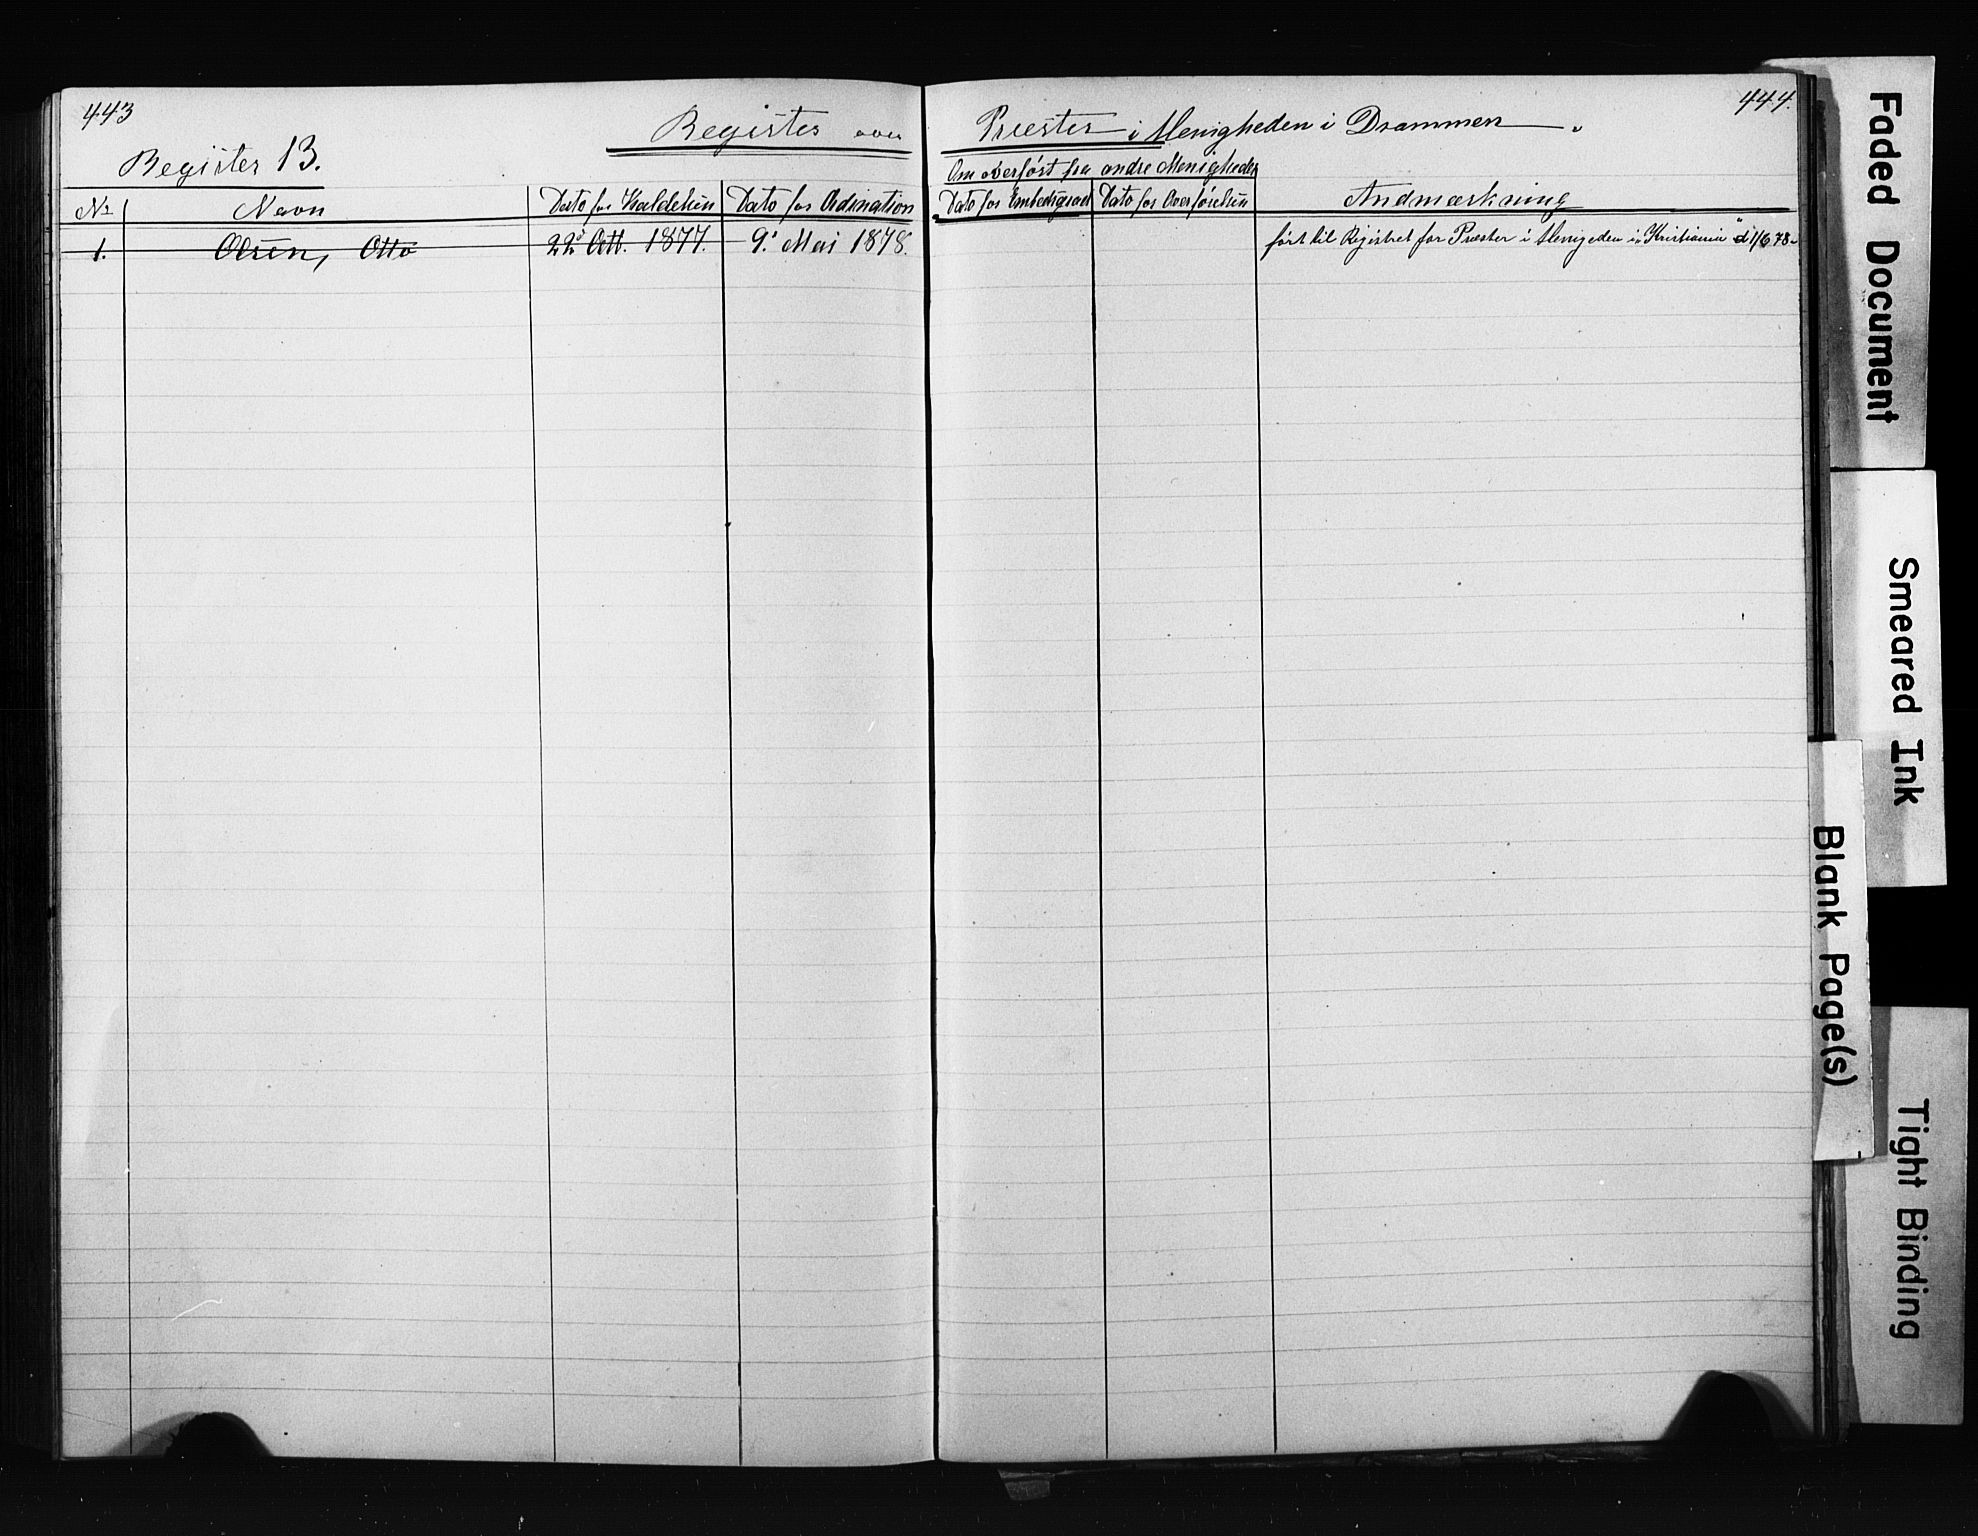 443
Register over
Register 13.
No Navn Dato for Kaldelsen Dato for Ordination
1. Olsen, Otto 22d Oct. 1877. 9d Mai 1878.
444.
Præster i Menigheden i Drammen.
Om overført fra andre Menigheder
Dato for Embedsgrad Dato for Overførelsen Andmærkning
ført til Registret for Præster i Menigeden i "Kristiania" d 1/6 78.
Faded Document
Smeared Ink
Blank Page(s)
Tight Binding